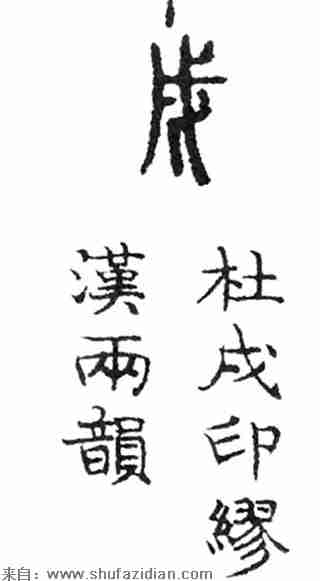 杜戌印繆
漢兩韻
来自：www.shufazidian.com